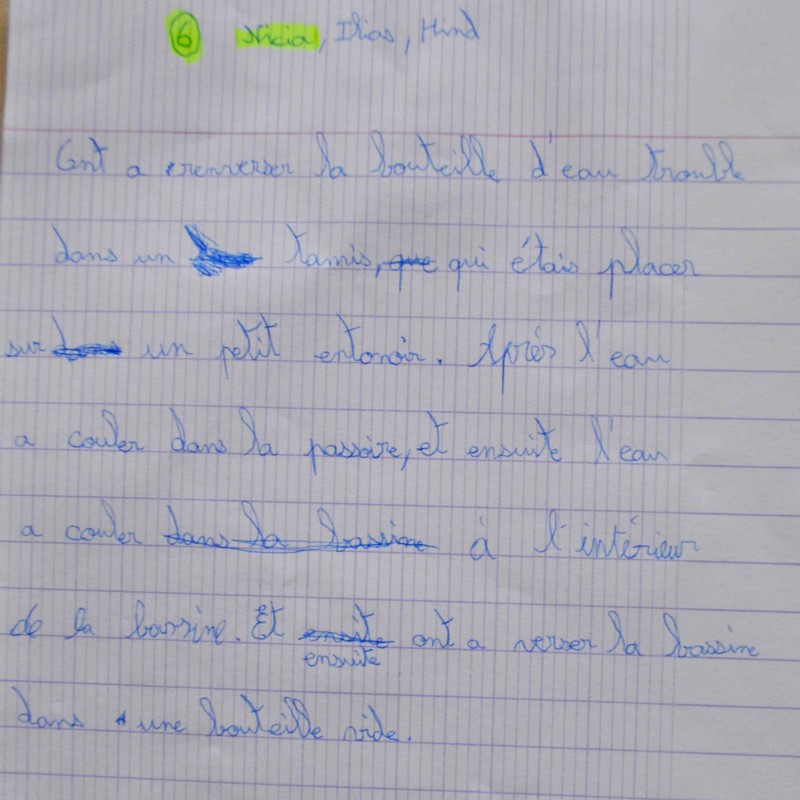 6 Nicia, Ilias, Hind
Ont a renverser la bouteille d'eau trouble
dans un tamis, que qui étais placer
sur dans un petit entonoir. Après l'eau
a couler dans la passoire, et ensuite l'eau
a couler dans la bassine à l'intérieur
de la bassine. Et ensuite ont a verser la bassine
ensuite
dans une bouteille vide.